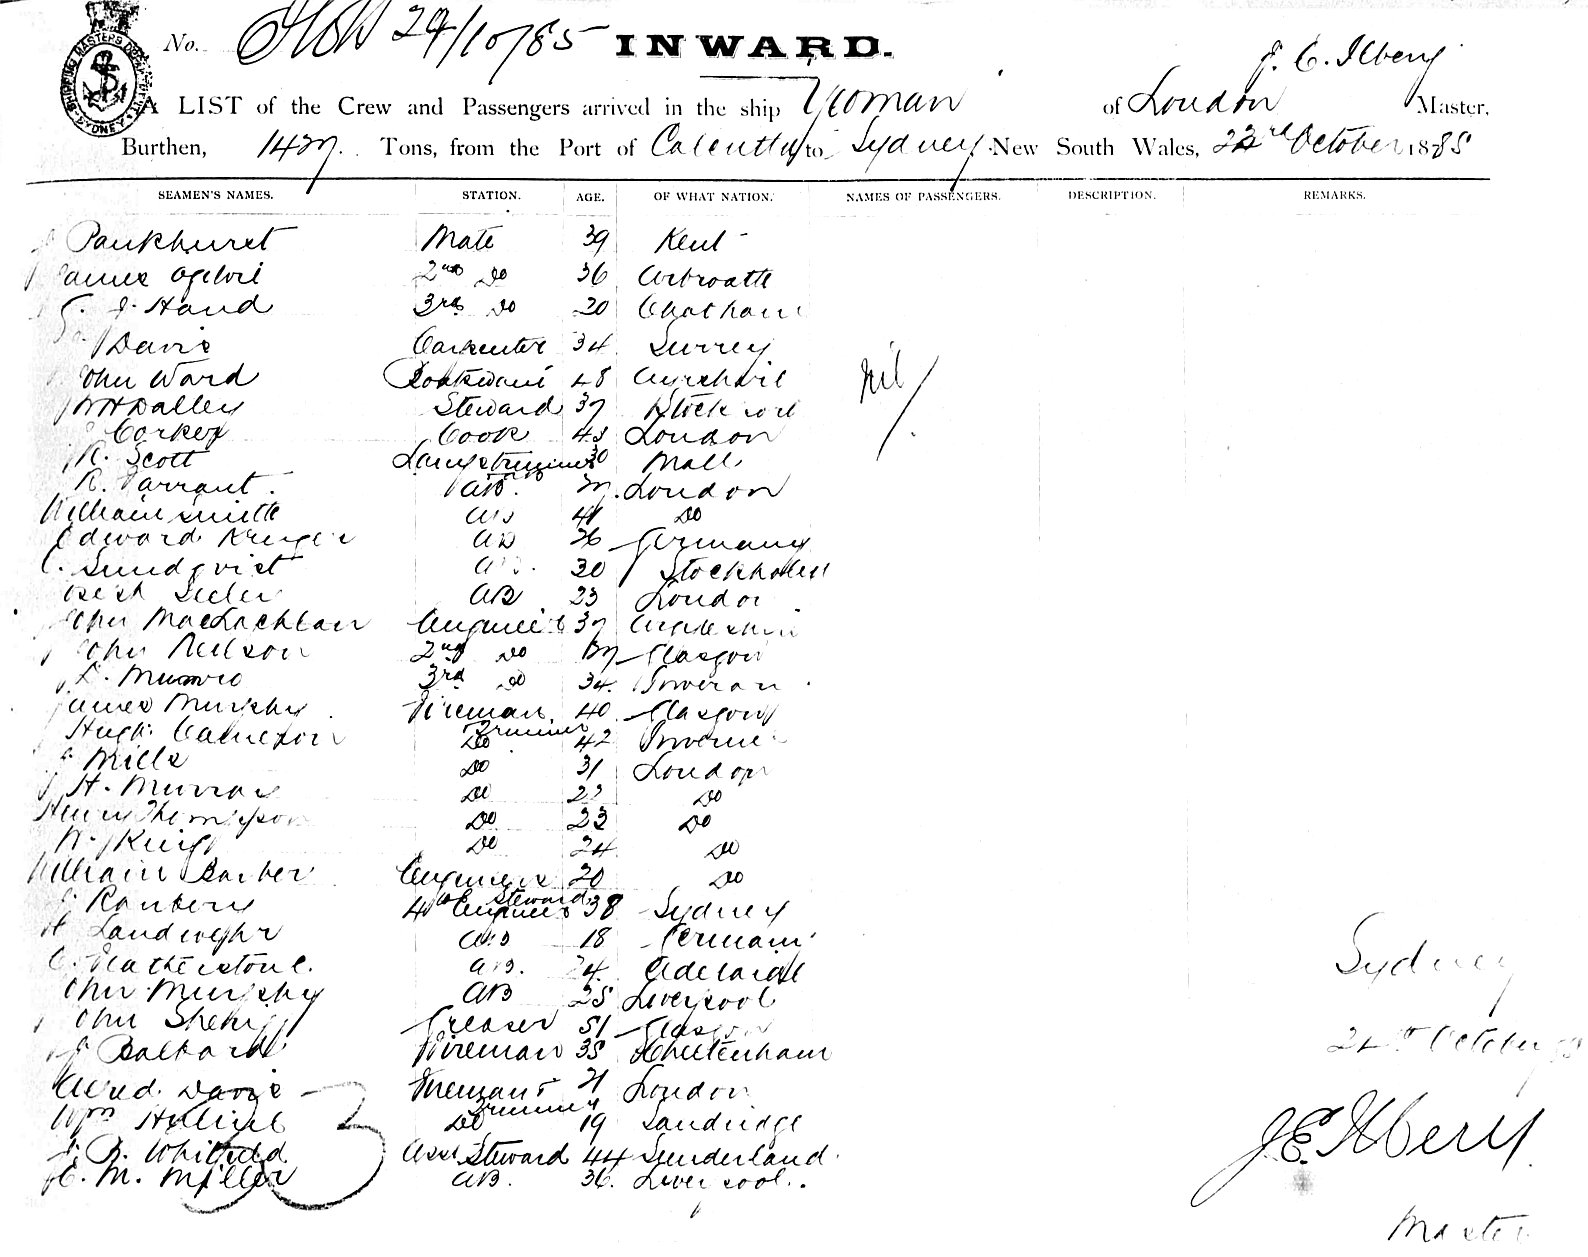 No. 24/10/85 INWARD.
SHIPPING MASTERS SYDNEY
J. E. Ilbery
A LIST of the Crew and Passengers arrived in the ship Yeoman of London Master,
Burthen, 1427 Tons, from the Port of Calcutta to Sydney New South Wales, 23rd October 1885
SEAMEN'S NAMES. STATION. AGE. OF WHAT NATION. NAMES OF PASSENGERS. DESCRIPTION. REMARKS.
J Pankhurst Mate 39 Kent
James Ogilvie 2nd Do 36 Arbroath
J. Hand 3rd Do 20 Chatham
Davis Carpenter 34 Surrey
John Ward Boatswain 48 Ayrshire
Nil
W H Dalley Steward 37
Corkey Cook 43 London
R. Scott Lamptrimmer 30
R. Tarrant AB. London
William Smith AB 41 Do
Edward Kruger AB 26 Germany
C. Sundqvist AB. 30 Stockholm
AB 23 London
John MacLachlan Engineer 37
John Neilson 2nd Do Glasgow
D. Munro 3rd Do 34
James Murphy Fireman 40 Glasgow
Hugh Cameron Do Trimmer 42
J Mills Do 31 London
H. Murray Do 22 Do
Henry Thompson Do 23 Do
W. King Do 24 Do
William Barber Engineers Steward 20 Do
J. 4th Engineer 38 Sydney
H Landwehr AB 18 German
C. Featherstone. AB. 24 Adelaide
John Murphy AB 25 Liverpool
John Greaser 51 Glasgow
J Ballard Fireman 35 Cheltenham
Alfred Davis Fireman & Trimmer 21 London
Wm Do 19 Sandridge
J. R. Whitfield Asst Steward 44 Sunderland
E. M. Miller AB. 36. Liverpool.
33
Sydney
24th October 85
J E Ilbery
Master